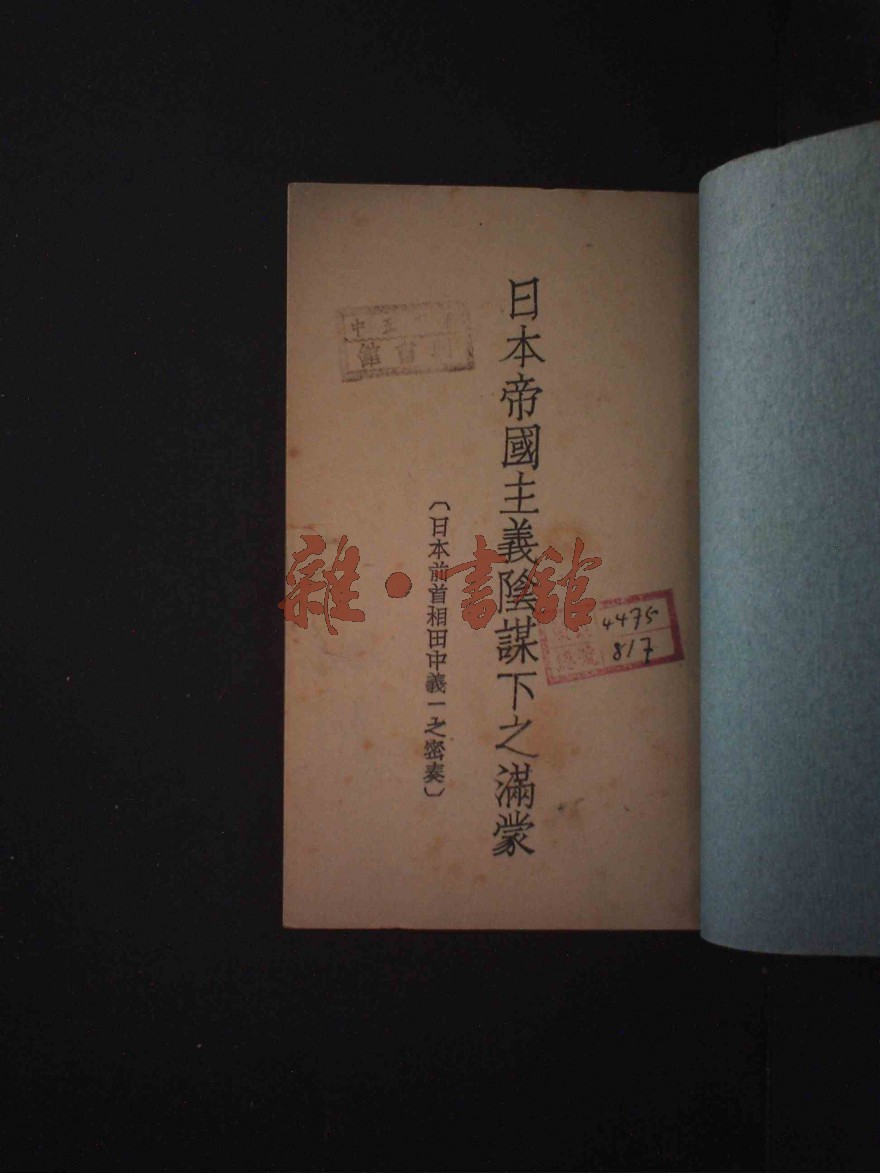 日本帝國主義陰謀下之滿蒙
〔日本前首相田中義一之密奏〕
雜·書館
4475
817